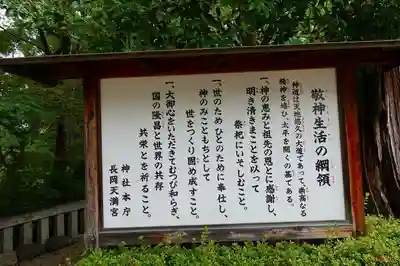 敬神生活の綱領
神道は天地悠久の大道であって、崇高なる
精神を培ひ、太平を開くの基である。
一、神の恵みと祖先の恩とに感謝し、
明き清きまことを以って
祭祀にいそしむこと。
一、世のためひとのために奉仕し、
神のみこともちとして
世をつくり固め成すこと。
一、大御心をいただきてむつび和らぎ、
国の隆昌と世界の共存
共栄とを祈ること。
神社本庁
長岡天満宮